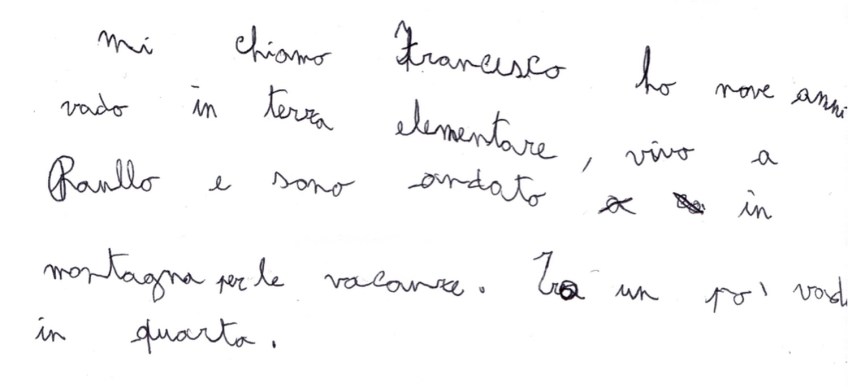 mi chiamo Francesco ho nove anni
vado in terza elementare, vivo a
Raullo e sono andato in
montagna per le vacanze. Tra un po' vad
in quarta.